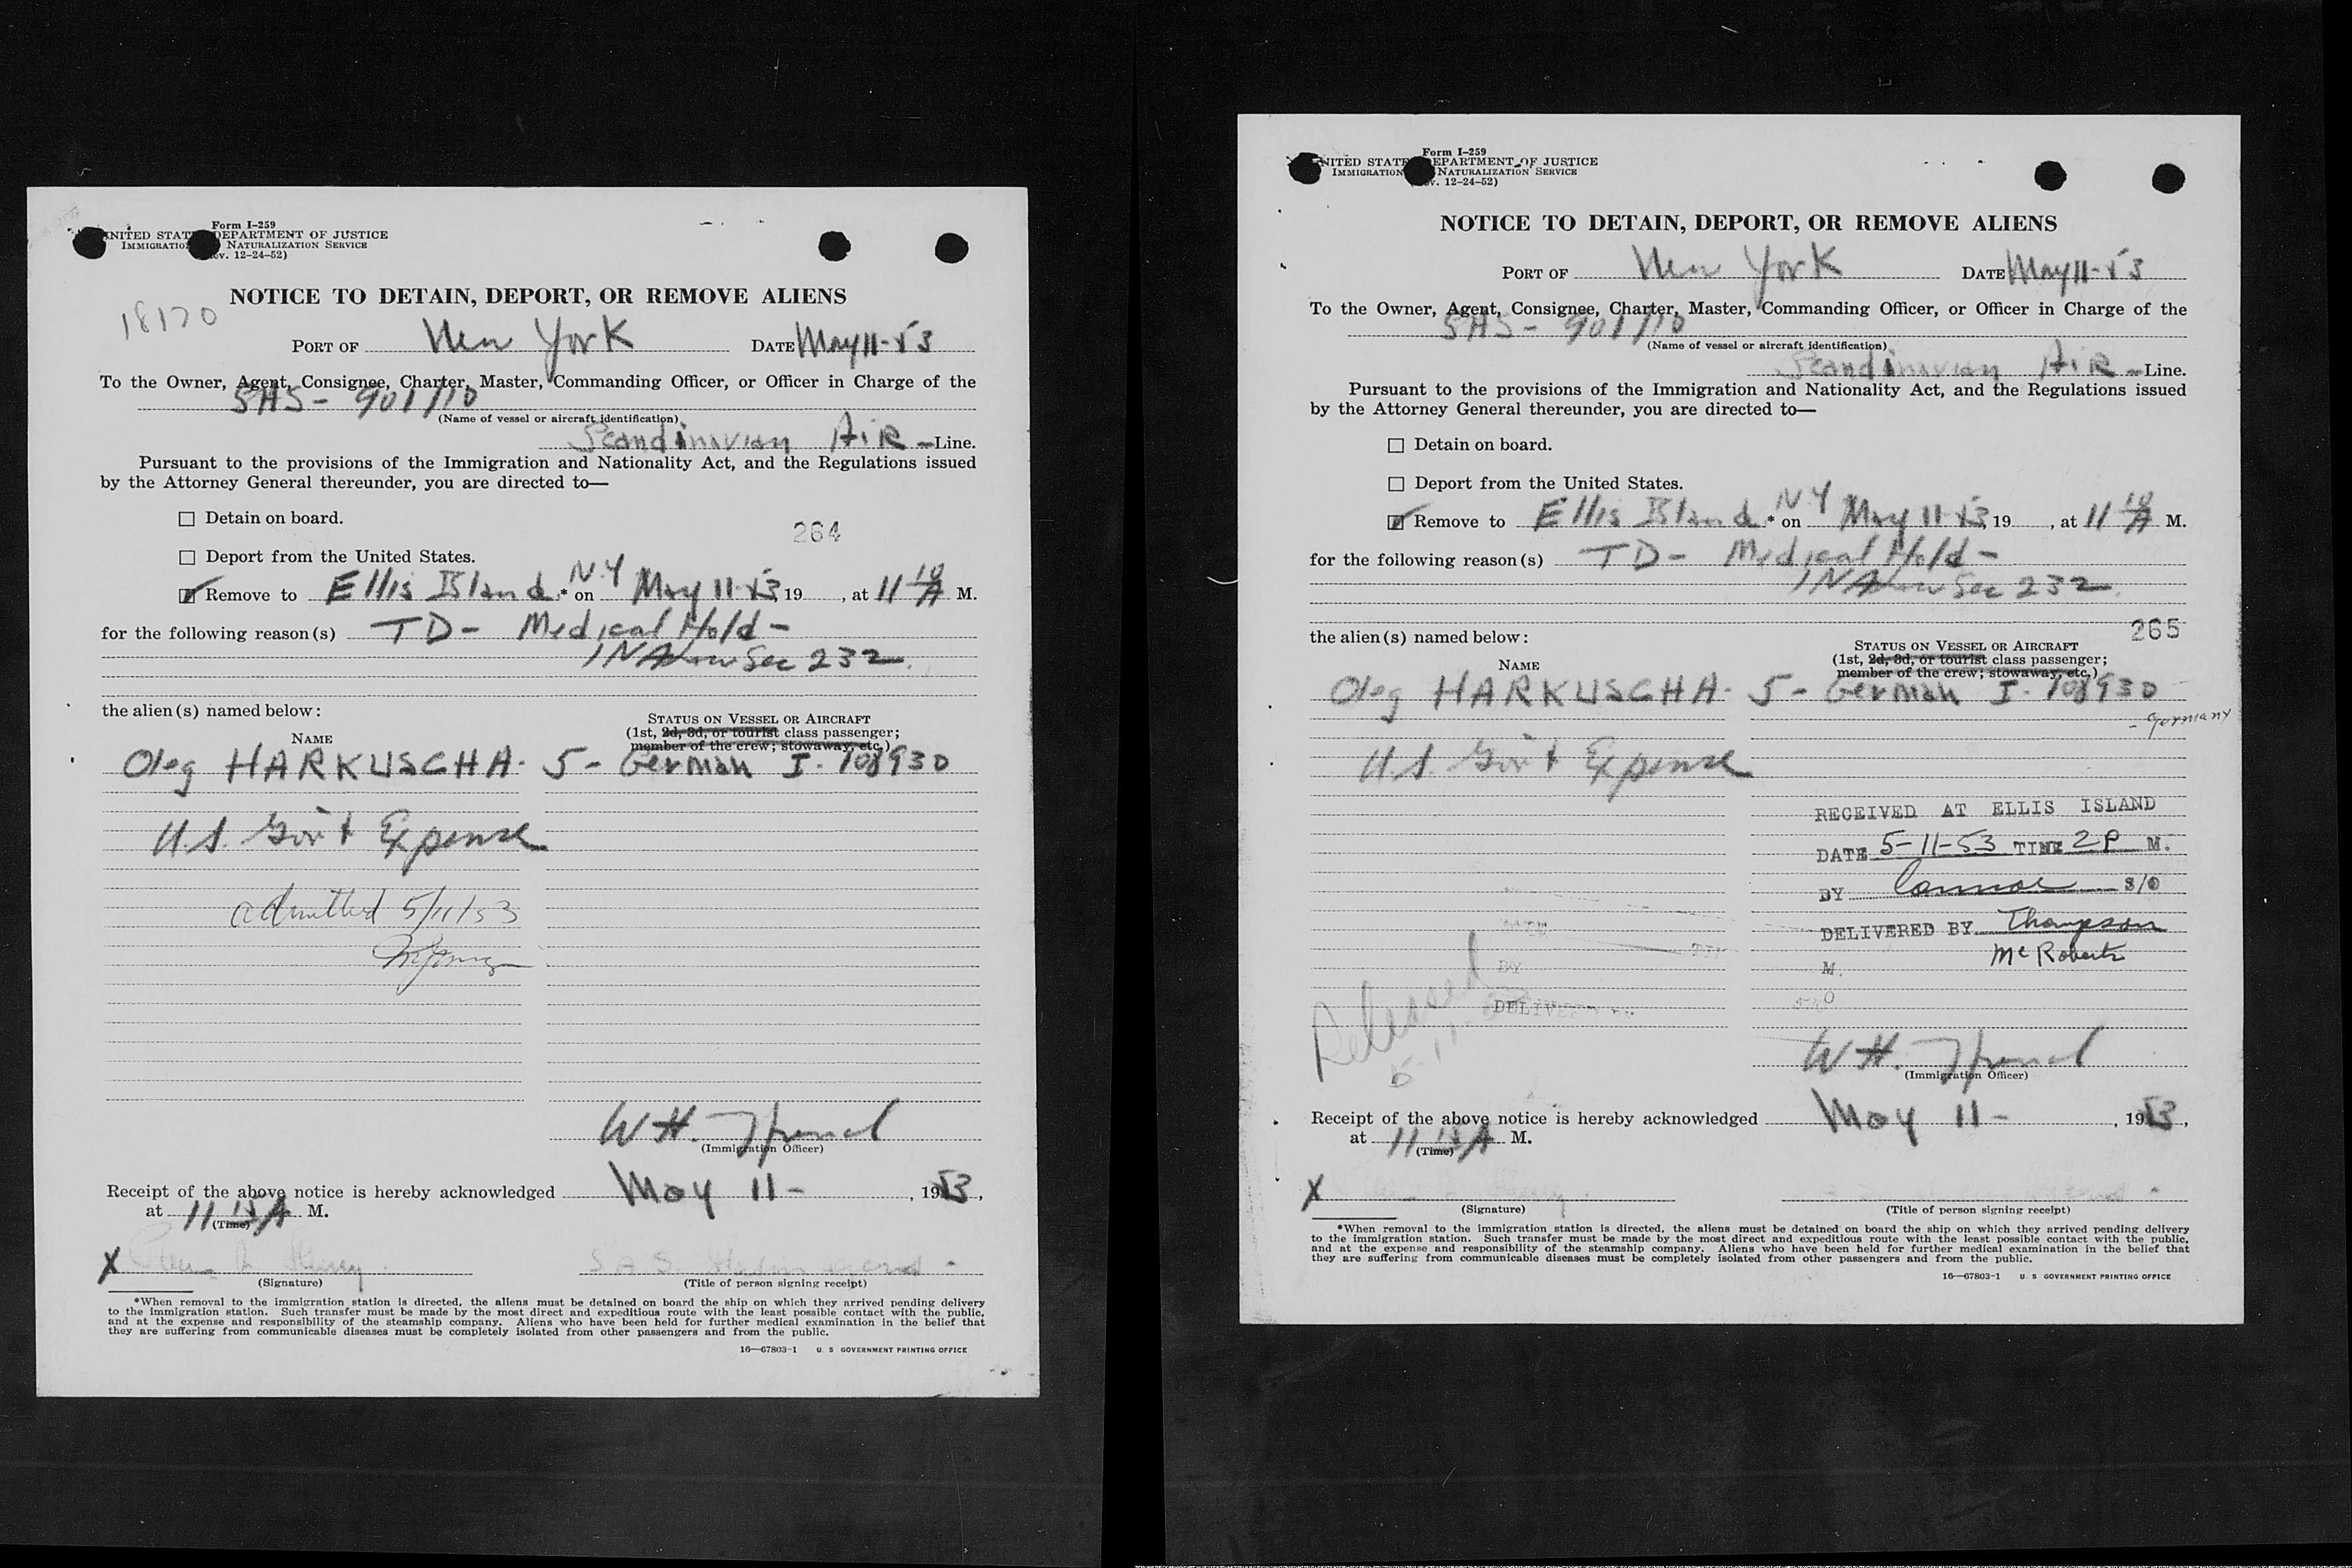 Form I-259
UNITED STATES DEPARTMENT OF JUSTICE
IMMIGRATION NATURALIZATION SERVICE
(Rev. 12-24-52)
NOTICE TO DETAIN, DEPORT, OR REMOVE ALIENS
18170
PORT OF New York DATE May 11-53
To the Owner, Agent, Consignee, Charter, Master, Commanding Officer, or Officer in Charge of the
SAS - 901/10
(Name of vessel or aircraft identification)
Scandinavian AiR - Line.
Pursuant to the provisions of the Immigration and Nationality Act, and the Regulations issued
by the Attorney General thereunder, you are directed to—
☐ Detain on board.
264
☐ Deport from the United States.
☑ Remove to Ellis Island N.Y * on May 11-53, 19 , at 11 10 A M.
for the following reason(s) TD - Medical Hold -
INA Sec 232.
the alien(s) named below:
STATUS ON VESSEL OR AIRCRAFT
(1st, 2d, 3d, or tourist class passenger;
NAME
member of the crew; stowaway, etc.)
Oleg HARKUSCHA - 5 - German I-108930
U.S. Gov't Expense
admitted 5/11/53
W H.
(Immigration Officer)
Receipt of the above notice is hereby acknowledged May 11 - , 1953,
at 11 15 A M.
(Time)
X
S A S
(Signature)
(Title of person signing receipt)
*When removal to the immigration station is directed, the aliens must be detained on board the ship on which they arrived pending delivery
to the immigration station. Such transfer must be made by the most direct and expeditious route with the least possible contact with the public,
and at the expense and responsibility of the steamship company. Aliens who have been held for further medical examination in the belief that
they are suffering from communicable diseases must be completely isolated from other passengers and from the public.
16—67803-1 U. S GOVERNMENT PRINTING OFFICE
Form I-259
UNITED STATES DEPARTMENT OF JUSTICE
IMMIGRATION NATURALIZATION SERVICE
(Rev. 12-24-52)
NOTICE TO DETAIN, DEPORT, OR REMOVE ALIENS
PORT OF New York DATE May 11-53
To the Owner, Agent, Consignee, Charter, Master, Commanding Officer, or Officer in Charge of the
SAS - 901/10
(Name of vessel or aircraft identification)
Scandinavian AiR - Line.
Pursuant to the provisions of the Immigration and Nationality Act, and the Regulations issued
by the Attorney General thereunder, you are directed to—
☐ Detain on board.
☐ Deport from the United States.
☑ Remove to Ellis Island N.Y * on May 11-53, 19 , at 11 10 A M.
for the following reason(s) TD - Medical Hold -
INA Sec 232.
the alien(s) named below:
265
STATUS ON VESSEL OR AIRCRAFT
(1st, 2d, 3d, or tourist class passenger;
NAME
member of the crew; stowaway, etc.)
Oleg HARKUSCHA - 5 - German I-108930
- Germany
U.S. Gov't Expense
RECEIVED AT ELLIS ISLAND
DATE 5-11-53 TIME 2 P M.
BY Connor S/O
DELIVERED BY Thompson
McRoberts
DATE
BY
M.
DELIVE
Released
5-11-
W H.
(Immigration Officer)
Receipt of the above notice is hereby acknowledged May 11 - , 1953,
at 11 15 A M.
(Time)
X
(Signature)
(Title of person signing receipt)
*When removal to the immigration station is directed, the aliens must be detained on board the ship on which they arrived pending delivery
to the immigration station. Such transfer must be made by the most direct and expeditious route with the least possible contact with the public,
and at the expense and responsibility of the steamship company. Aliens who have been held for further medical examination in the belief that
they are suffering from communicable diseases must be completely isolated from other passengers and from the public.
16—67803-1 U. S GOVERNMENT PRINTING OFFICE